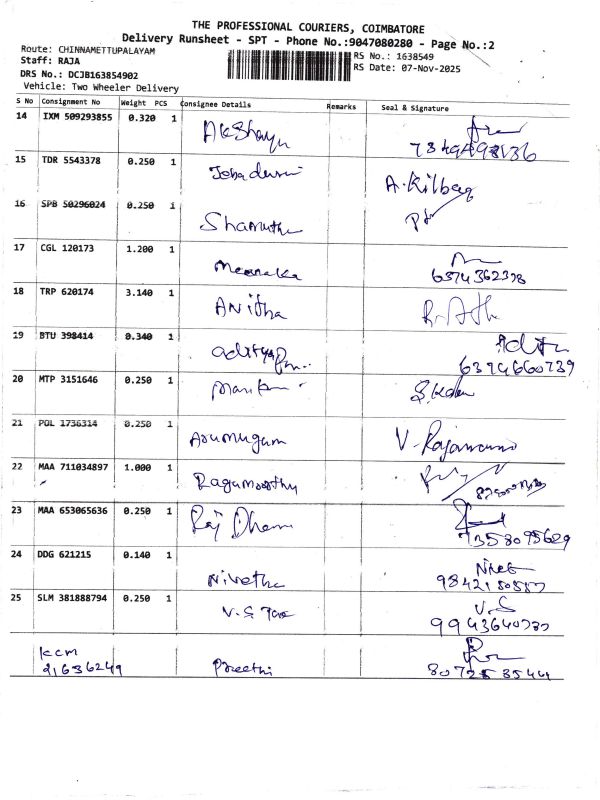 THE PROFESSIONAL COURIERS, COIMBATORE
Delivery Runsheet - SPT - Phone No.:9047080280 - Page No.:2
Route: CHINNAMETTUPALAYAM
RS No.: 1638549
Staff: RAJA
RS Date: 07-Nov-2025
DRS No.: DCJB163854902
Vehicle: Two Wheeler Delivery
S No Consignment No Weight PCS Consignee Details Remarks Seal & Signature
14 IXM 509293855 0.320 1 Akshaya
15 TDR 5543378 0.250 1 A.Kilbag
16 SPB 50296024 0.250 1
17 CGL 120173 1.200 1 Meenaka
6374362378
18 TRP 620174 3.140 1 Anitha
19 BTU 398414 0.340 1 aditya
6374660739
20 MTP 3151646 0.250 1
21 POL 1736314 0.250 1 Arumugam
22 MAA 711034897 1.000 1 Ragumoorthy
23 MAA 653065636 0.250 1 Raj
7358095629
24 DDG 621215 0.140 1 Nivetha
25 SLM 381888794 0.250 1 V.S V.S
kcm
21636249 Preethi